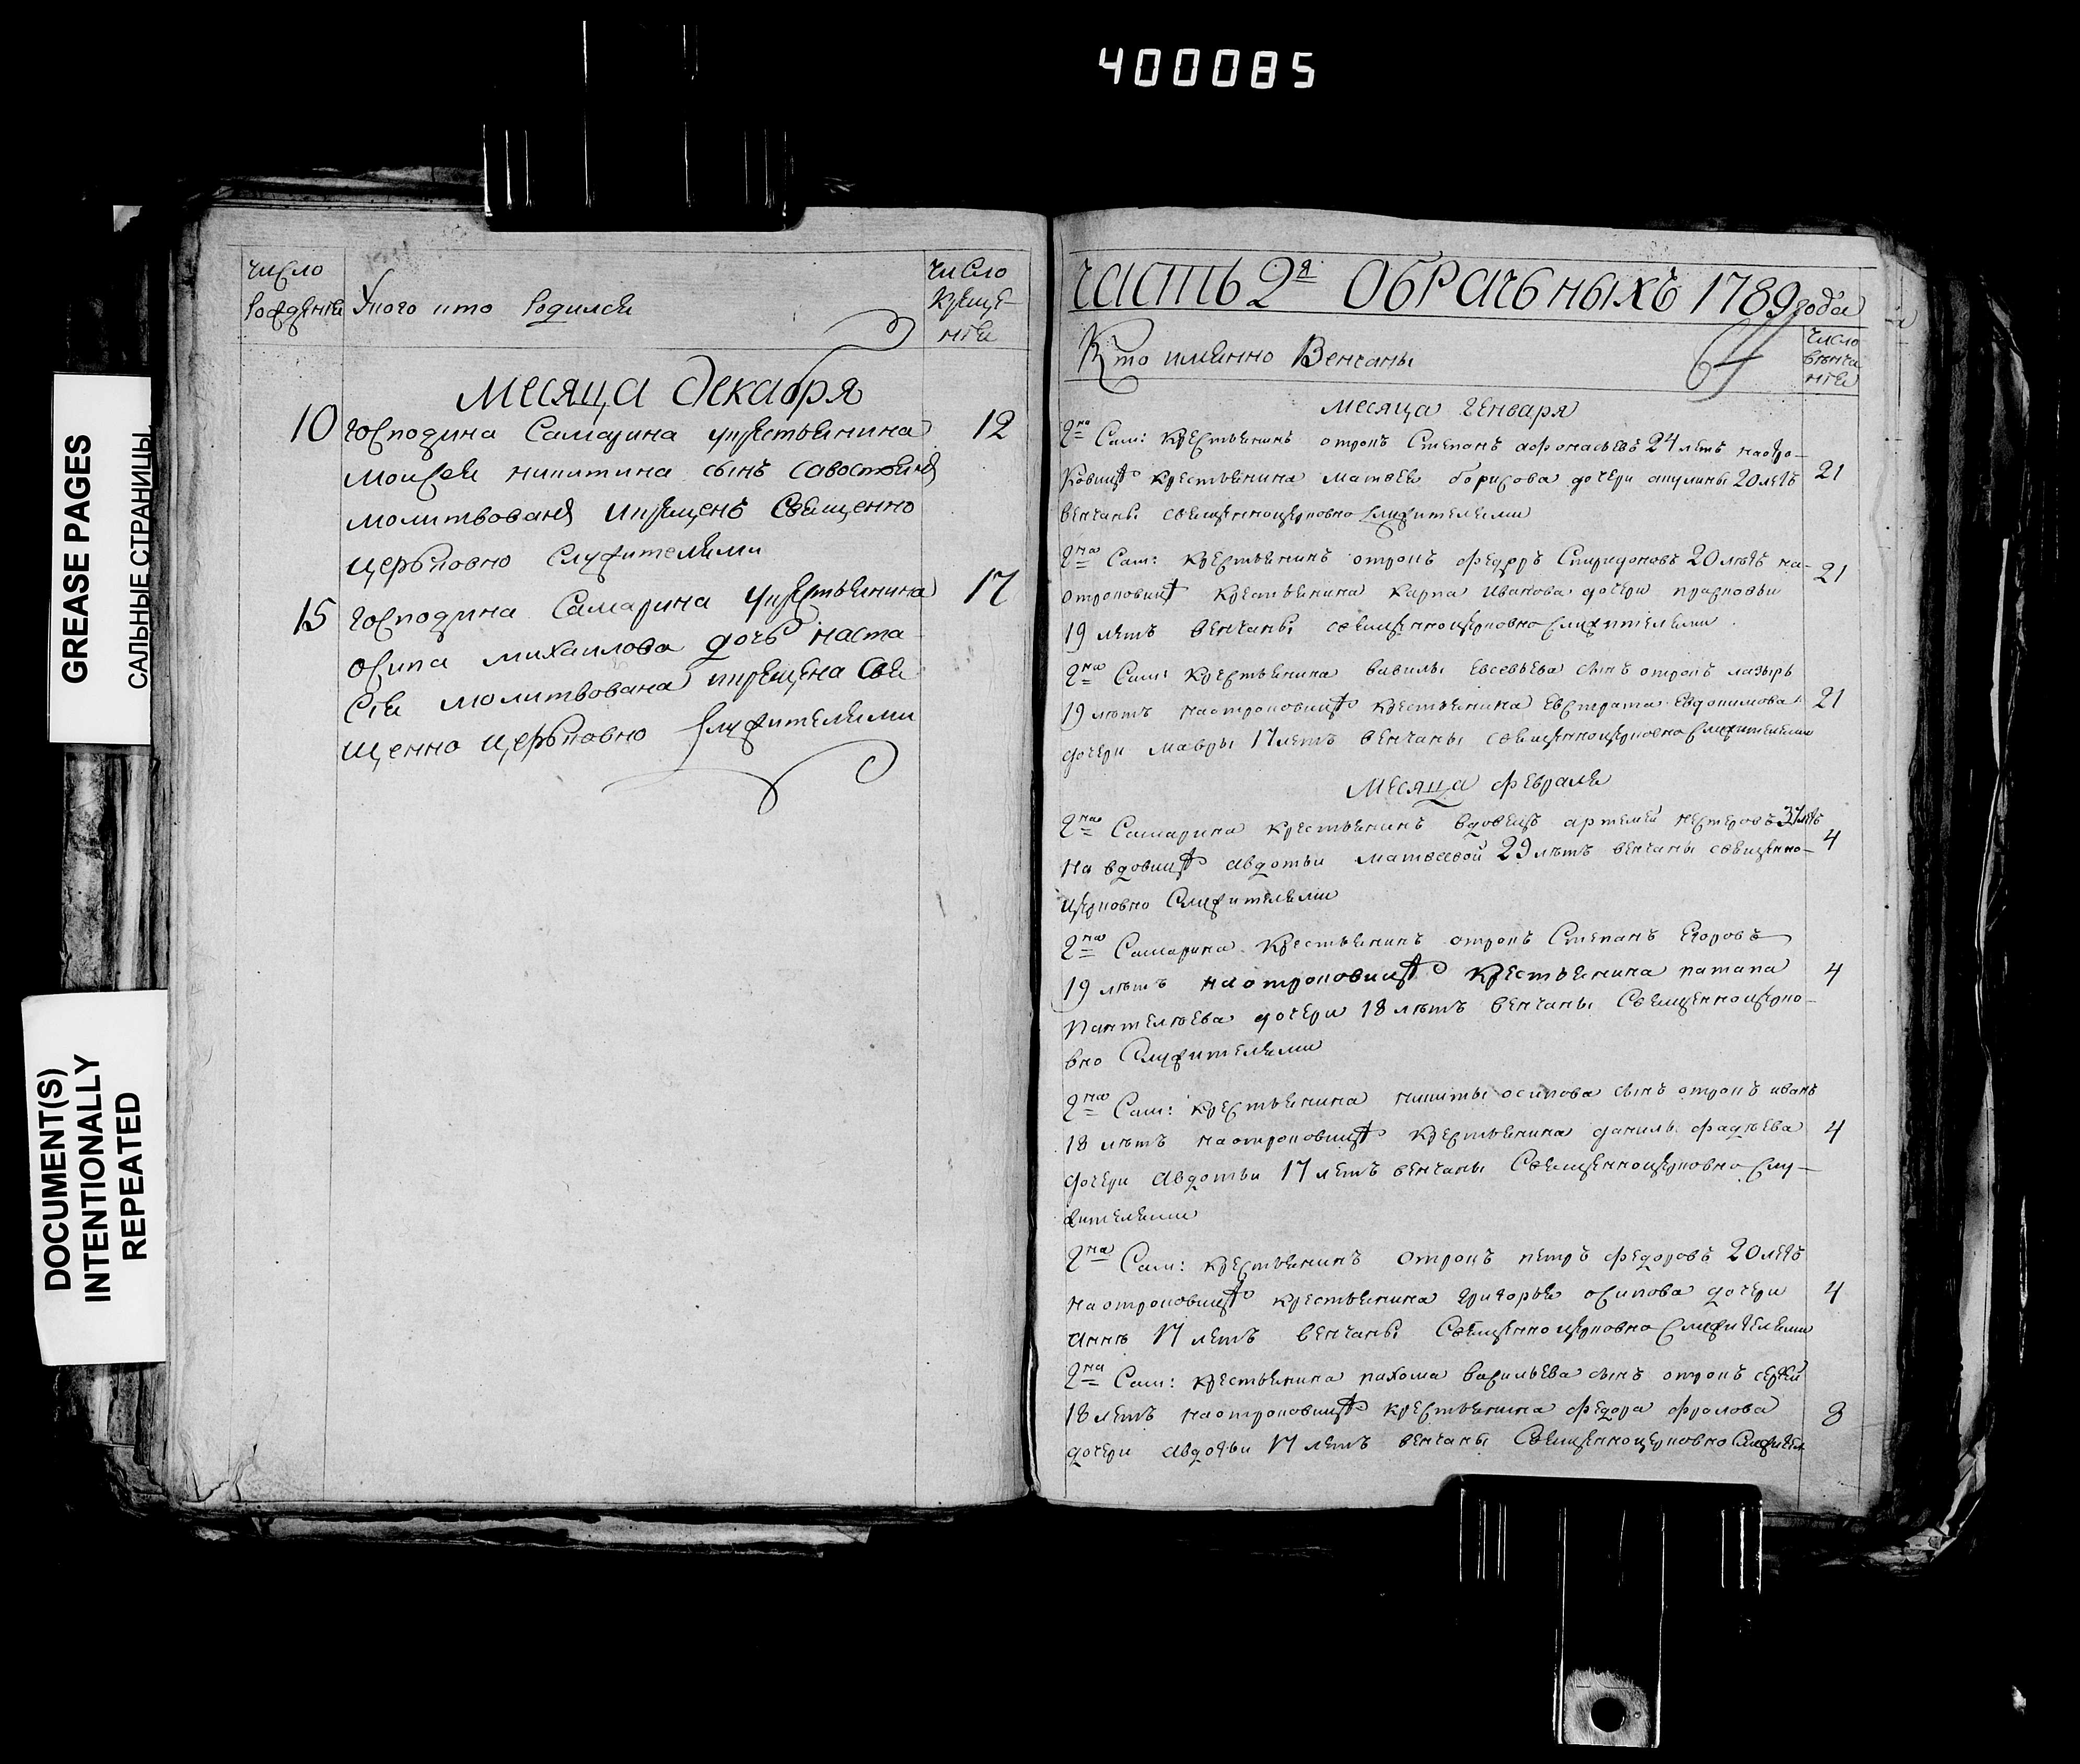 400085
GREASE PAGES
САЛЬНЫЕ СТРАНИЦЫ
DOCUMENT(S)
INTENTIONALLY
REPEATED
число рождения
У кого кто родился
число крещения
месяца декабря
10 господина Самарина у крестьянина 12
моисея никитина сынъ савостьянъ
молитвованъ и крещенъ Священно
церьковно служителями
15 господина Самарина у крестьянина 17
осипа михаилова дочь наста
сия молитвована и крещена Свя
щенно церьковно служителями
часть 2я о брачьныхъ 1789 года
Кто имянно Венчаны
64
число венчания
месяца генваря
гна Сам: крестьянинъ отрокъ Степанъ афонасьевъ 24 летъ на отро-
ковицѣ крестьянина матвея борисова дочери акулины 20 летъ 21
венчаны священноцерковно служителями
гна Сам: крестьянинъ отрокъ федоръ Спиридоновъ 20 летъ на- 21
отроковицѣ крестьянина карпа иванова дочери прасковьи
19 летъ венчаны священноцерковно служителями
гна Сам: крестьянина вавилы евсевьева сынъ отрокъ лазырь
19 летъ на отроковицѣ крестьянина евстрата евдокимова 21
дочери мавры 17 летъ венчаны священноцерковно служителями
Месяца февраля
гна Самарина крестьянинъ вдовецъ артемей нестеровъ летъ
на вдовицѣ авдотьи матвеевой 29 летъ венчаны священно- 4
церковно служителями
гна Самарина крестьянинъ отрокъ Степанъ Егоровъ
19 летъ на отроковицѣ крестьянина патапа 4
пантелѣева дочери 18 летъ венчаны Священноцерко-
вно Служителями
гна Сам: крестьянина никиты осипова сынъ отрокъ иванъ
18 летъ на отроковицѣ крестьянина данилы фадѣева 4
дочери авдотьи 17 летъ венчаны Священноцерковно слу-
жителями
гна Сам: крестьянинъ отрокъ петръ федоровъ 20 летъ
на отроковицѣ крестьянина григорья осипова дочери 4
аннѣ 17 летъ венчаны Священноцерковно служителями
гна Сам: крестьянина пахома васильева сынъ отрокъ сергей
18 летъ на отроковицѣ крестьянина федора фролова 8
дочери авдотьи 17 летъ венчаны Священноцерковно служител